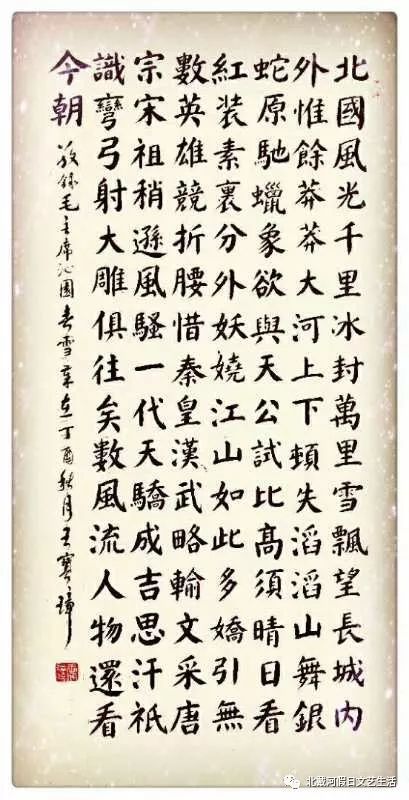 北國風光千里冰封萬里雪飄望長城内
外惟餘莽莽大河上下頓失滔滔山舞銀
蛇原馳蠟象欲與天公試比高須晴日看
紅装素裏分外妖嬈江山如此多嬌引無
數英雄競折腰惜秦皇漢武略輸文采唐
宗宋祖稍遜風騷一代天驕成吉思汗祇
識彎弓射大雕俱往矣數風流人物還看
今朝 敬錄毛主席沁園春雪 丁酉秋月王寶
北戴河假日文艺生活